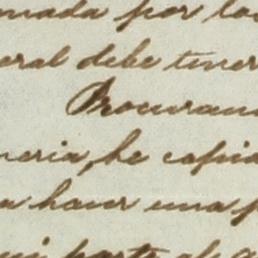 mada por la
eral debe tener
Procuran
neria, he copia
a haver una p